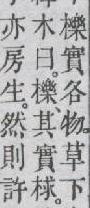 櫟實各物。草下
木曰。櫟、其實梂。
亦房生。然則許